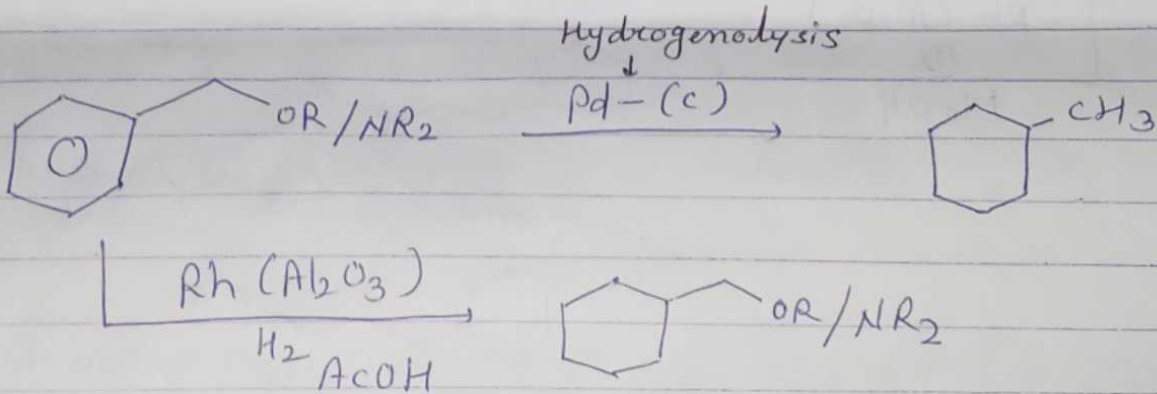 Hydrogenolysis
↓
OR/NR2 Pd-(c) CH3
Rh (Al2O3)
H2 AcOH
OR/NR2